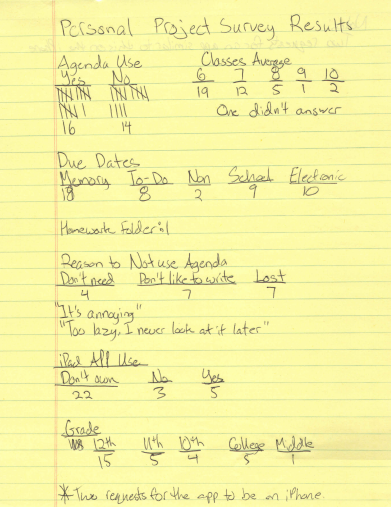 Personal Project Survey Results
Agenda Use Classes Average
Yes No 6 7 8 9 10
19 12 5 1 2
One didn't answer
16 14
Due Dates
Memory To-Do Non School Electronic
18 8 2 9 10
Homework folder: 1
Reason to Not use Agenda
Don't need Don't like to write Lost
4 7 7
"It's annoying"
"Too lazy, I never look at it later"
iPad App Use
Don't own No Yes
22 3 5
Grade
12th 11th 10th College Middle
15 5 4 5 1
*Two requests for the app to be on iPhone.